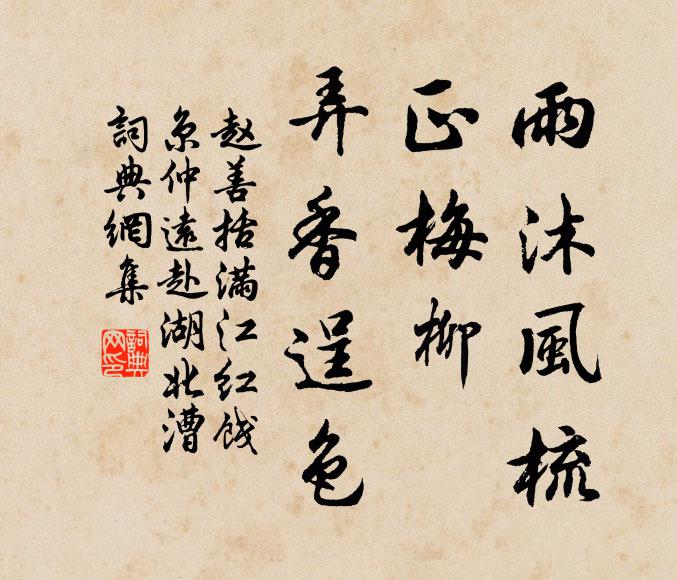 雨沐風梳
正梅柳
弄香逞色
赵善括满江红饯
京仲遠赴湖北漕
詞典網集
詞典网印